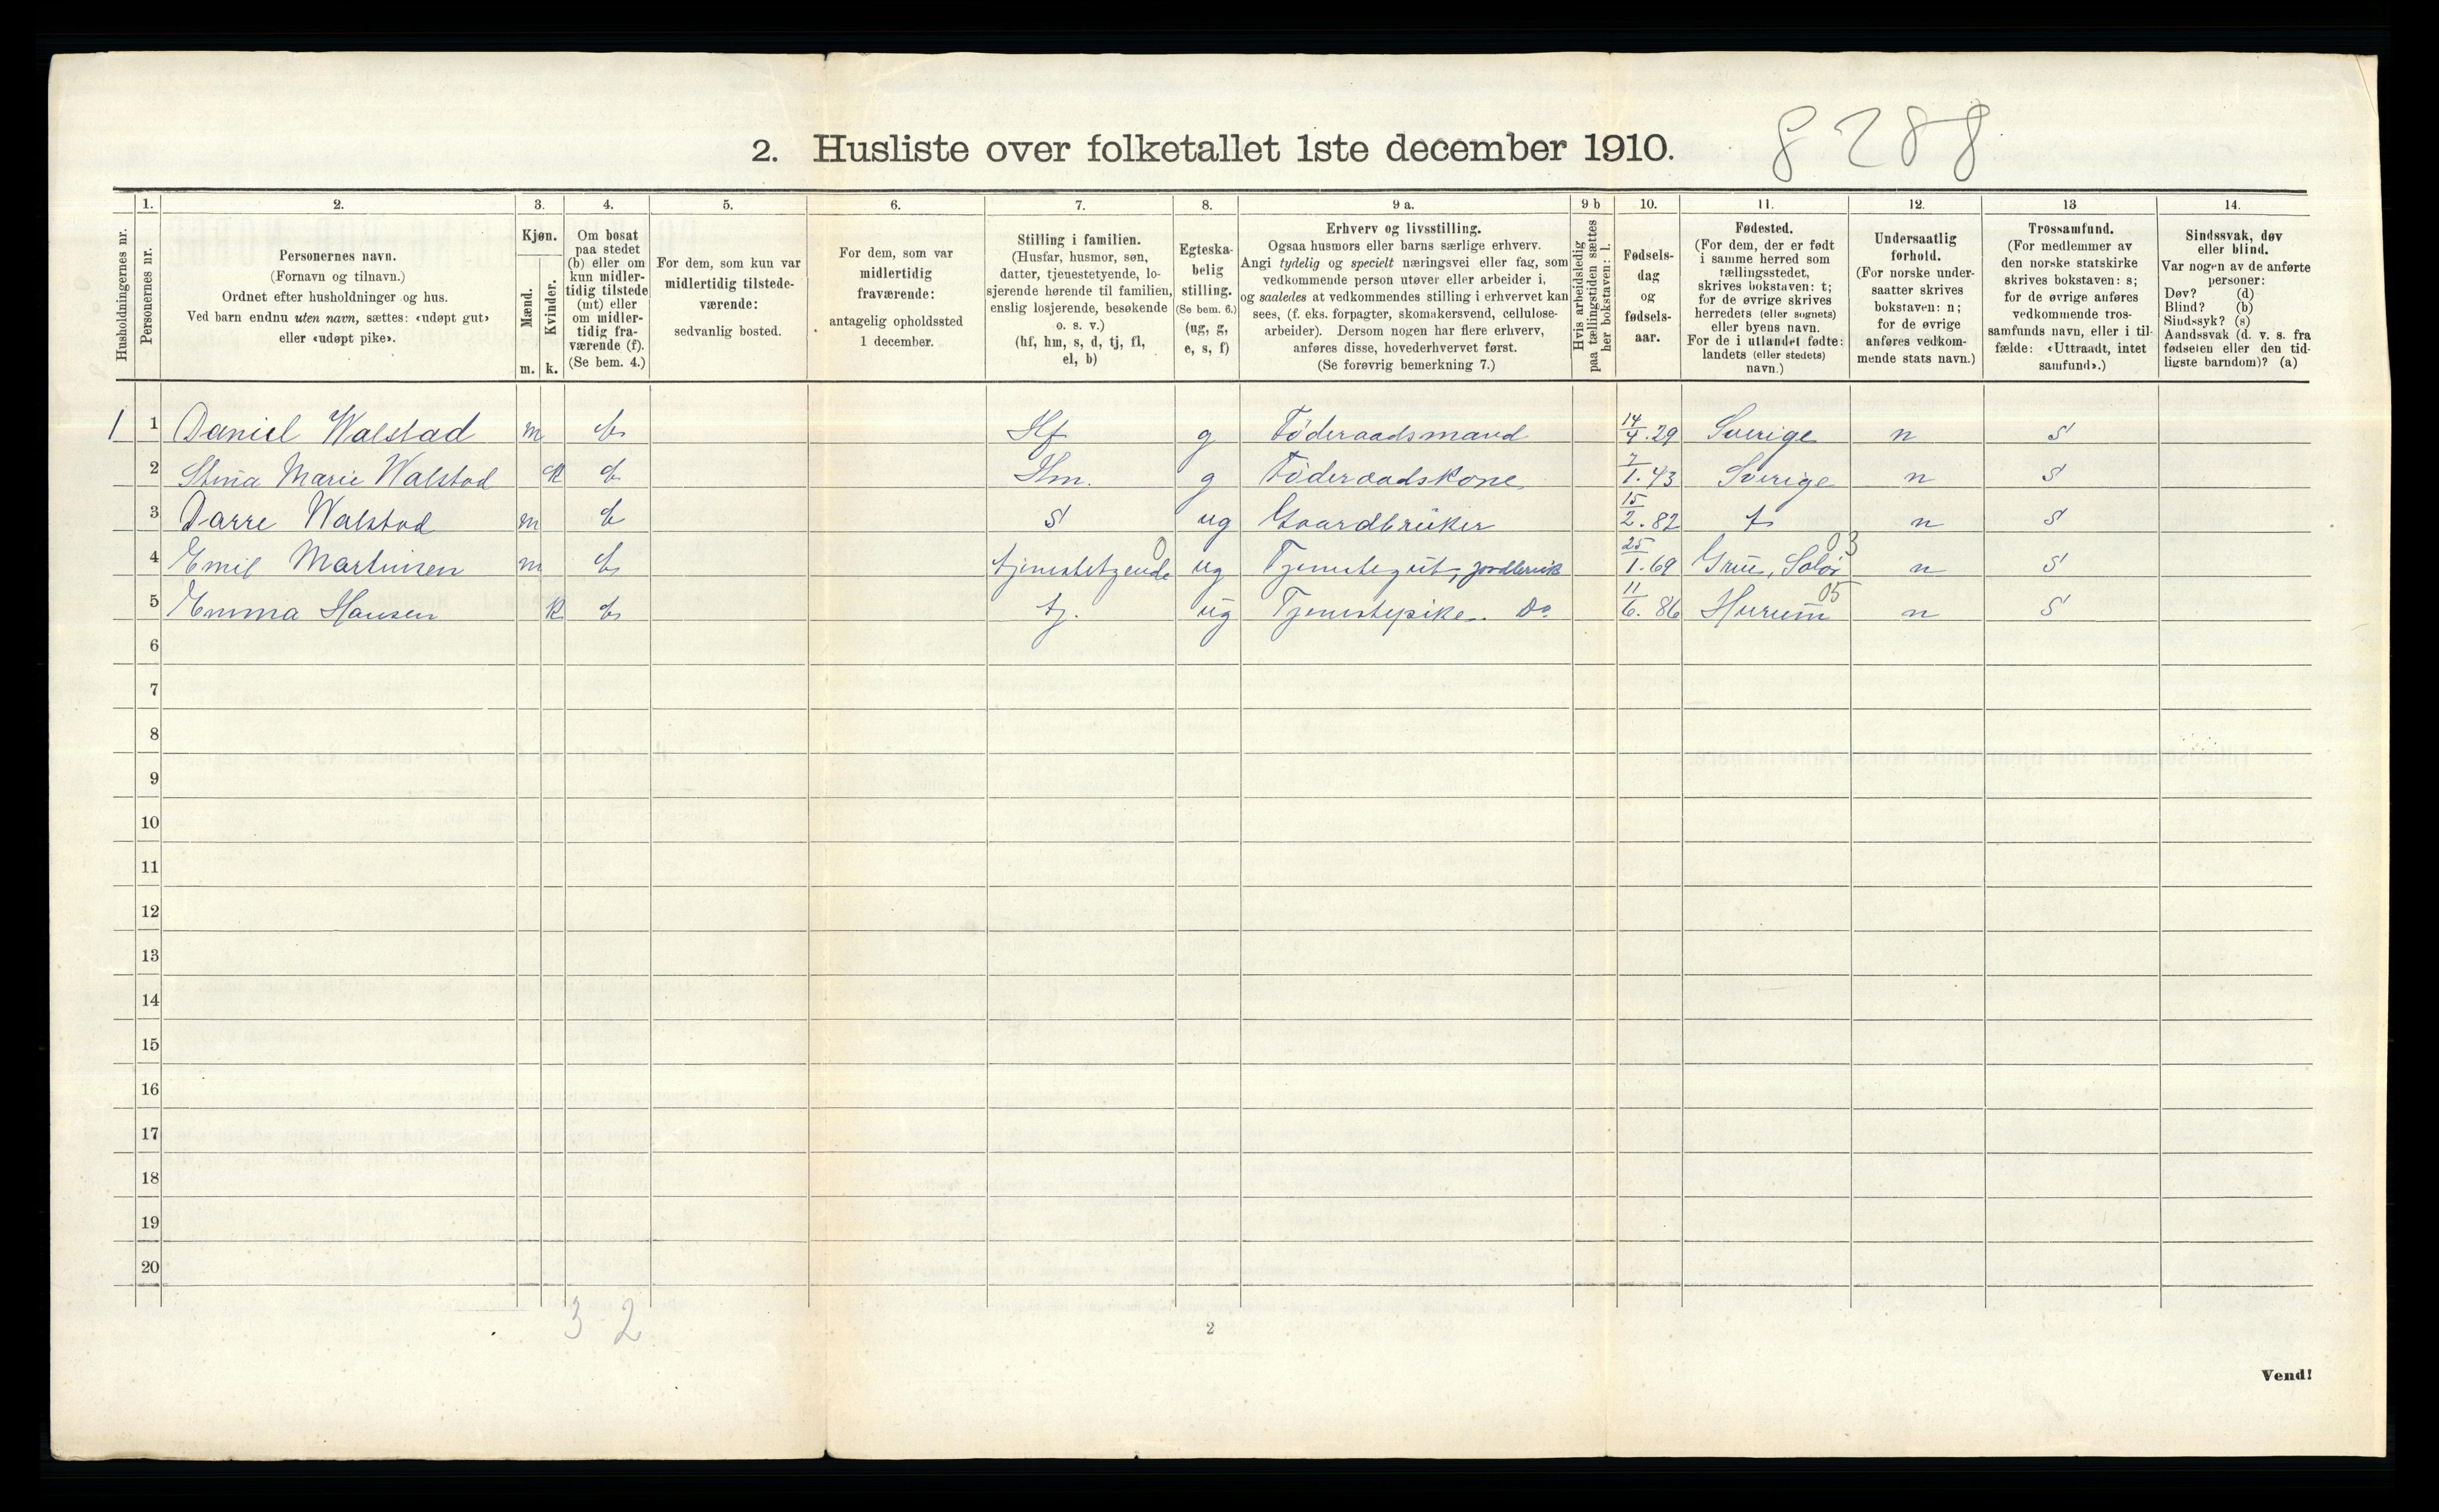 2. Husliste over folketallet 1ste december 1910. 8288
Husholdningernes nr.
1.
Personernes nr.
2.
Personernes navn.
(Fornavn og tilnavn.)
Ordnet efter husholdninger og hus.
Ved barn endnu uten navn, sættes: «udøpt gut»
eller «udøpt pike».
3.
Kjøn.
Mænd.
Kvinder.
m. k.
4.
Om bosat
paa stedet
(b) eller om
kun midler-
tidig tilstede
(mt) eller
om midler-
tidig fra-
værende (f).
(Se bem. 4.)
5.
For dem, som kun var
midlertidig tilstede-
værende:
sedvanlig bosted.
6.
For dem, som var
midlertidig
fraværende:
antagelig opholdssted
1 december.
7.
Stilling i familien.
(Husfar, husmor, søn,
datter, tjenestetyende, lo-
sjerende hørende til familien,
enslig losjerende, besøkende
o. s. v.)
(hf, hm, s, d, tj, fl,
el, b)
8.
Egteska-
belig
stilling.
(Se bem. 6.)
(ug, g,
e, s, f)
9 a.
Erhverv og livsstilling.
Ogsaa husmors eller barns særlige erhverv.
Angi tydelig og specielt næringsvei eller fag, som
vedkommende person utøver eller arbeider i,
og saaledes at vedkommendes stilling i erhvervet kan
sees, (f. eks. forpagter, skomakersvend, cellulose-
arbeider). Dersom nogen har flere erhverv,
anføres disse, hovederhvervet først.
(Se forøvrig bemerkning 7.)
9 b
Hvis arbeidsledig
paa tællingstiden sættes
her bokstaven: l.
10.
Fødsels-
dag
og
fødsels-
aar.
11.
Fødested.
(For dem, der er født
i samme herred som
tællingsstedet,
skrives bokstaven: t;
for de øvrige skrives
herredets (eller sognets)
eller byens navn.
For de i utlandet fødte:
landets (eller stedets)
navn.)
12.
Undersaatlig
forhold.
(For norske under-
saatter skrives
bokstaven: n;
for de øvrige
anføres vedkom-
mende stats navn.)
13
Trossamfund.
(For medlemmer av
den norske statskirke
skrives bokstaven: s;
for de øvrige anføres
vedkommende tros-
samfunds navn, eller i til-
fælde: «Uttraadt, intet
samfund».)
14.
Sindssvak, døv
eller blind.
Var nogen av de anførte
personer:
Døv? (d)
Blind? (b)
Sindssyk? (s)
Aandssvak (d. v. s. fra
fødselen eller den tid-
ligste barndom)? (a)
1 1 Daniel Walstad m b Hf g Föderaadsmand 14/4.29 Sverige n s
2 Stina Marie Walstad k b Hm. g Föderaadskone 7/1.43 Sverige n s
3 Darre Walstad m b s ug Gaardbrüker 15/2.82 t n s
4 Emil Martinsen m b tjenestetyende 0 ug Tjenstegüt, jordbruk 25/1.69 Grüe, Solör 03 n s
5 Emma Hansen k b tj. ug Tjenestepike. Do 11/6.86 Hurum 05 n s
6
7
8
9
10
11
12
13
14
15
16
17
18
19
20
3 2
2
Vend!